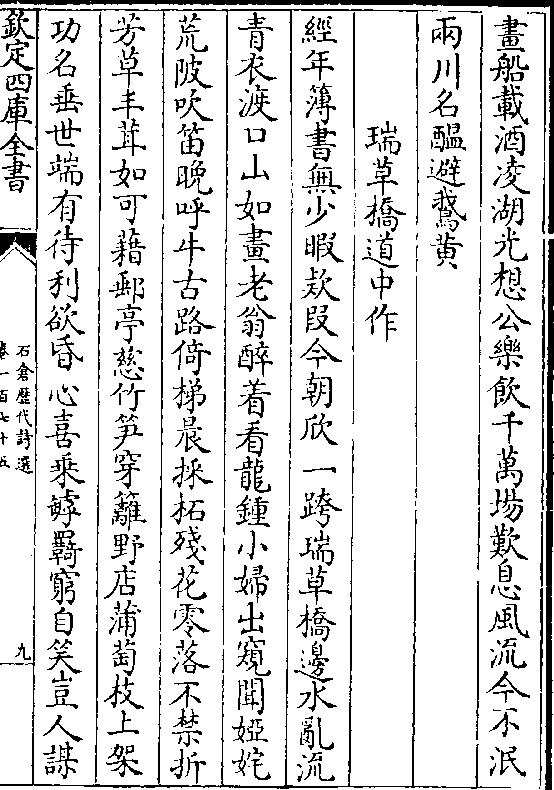 畫船載酒凌湖光想公樂飲千萬場歎息風流今不泯
兩川名醖避鵝黄
瑞草橋道中作
經年簿書無少暇欵段今朝欣一跨瑞草橋邊水亂流
青衣渡口山如畫老翁醉着看龍鍾小婦出窺聞婭姹
荒陂吹笛晚呼牛古路倚梯晨採柘殘花零落不禁折
芳草丰茸如可藉郵亭慈竹笋穿籬野店蒲萄枝上架
功名垂世端有待利欲昏心喜乘罅羇窮自笑豈人謀
欽定四庫全書
石倉歴代詩選
卷一百七十五
九